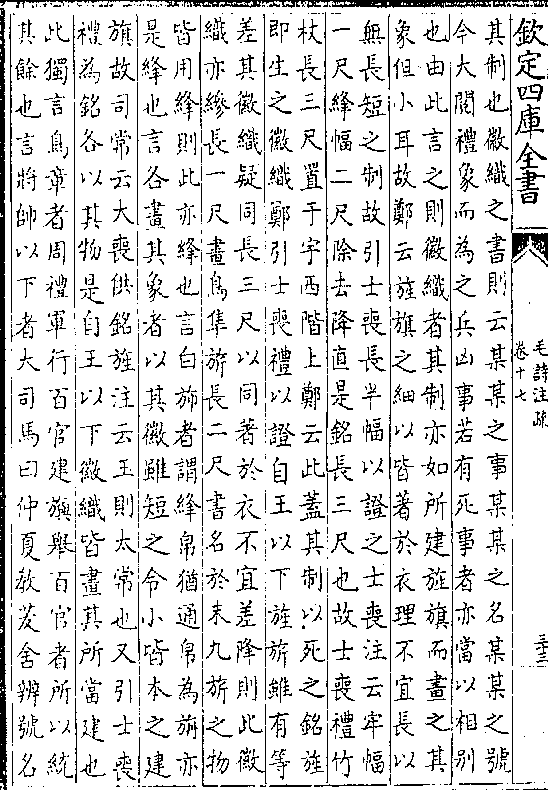 欽定四庫全書
毛詩注疏
卷十七
三十三
其制也徽織之書則云某某之事某某之名某某之號
今大閱禮象而為之兵凶事若有死事者亦當以相別
也由此言之則徽織者其制亦如所建旌旗而畫之其
象但小耳故鄭云旌旗之細以皆著於衣理不宜長以
無長短之制故引士喪長半幅以證之士喪注云半幅
一尺絳幅二尺除去降直是銘長三尺也故士喪禮竹
杖長三尺置于宇西階上鄭云此蓋其制以死之銘旌
即生之徽織鄭引士喪禮以證自王以下旌旂雖有等
差其徽織疑同長三尺以同著於衣不宜差降則此徽
織亦縿長一尺畫鳥隼旂長二尺書名於末九旂之物
皆用絳則此亦絳也言白斾者謂絳帛猶通帛為旃亦
是絳也言各畫其象者以其徽雖短之令小皆本之建
旗故司常云大喪供銘旌注云王則太常也又引士喪
禮為銘各以其物是自王以下徽織皆畫其所當建也
此獨言鳥章者周禮軍行百官建旟舉百官者所以統
其餘也言將帥以下者大司馬曰仲夏教茇舍辨號名